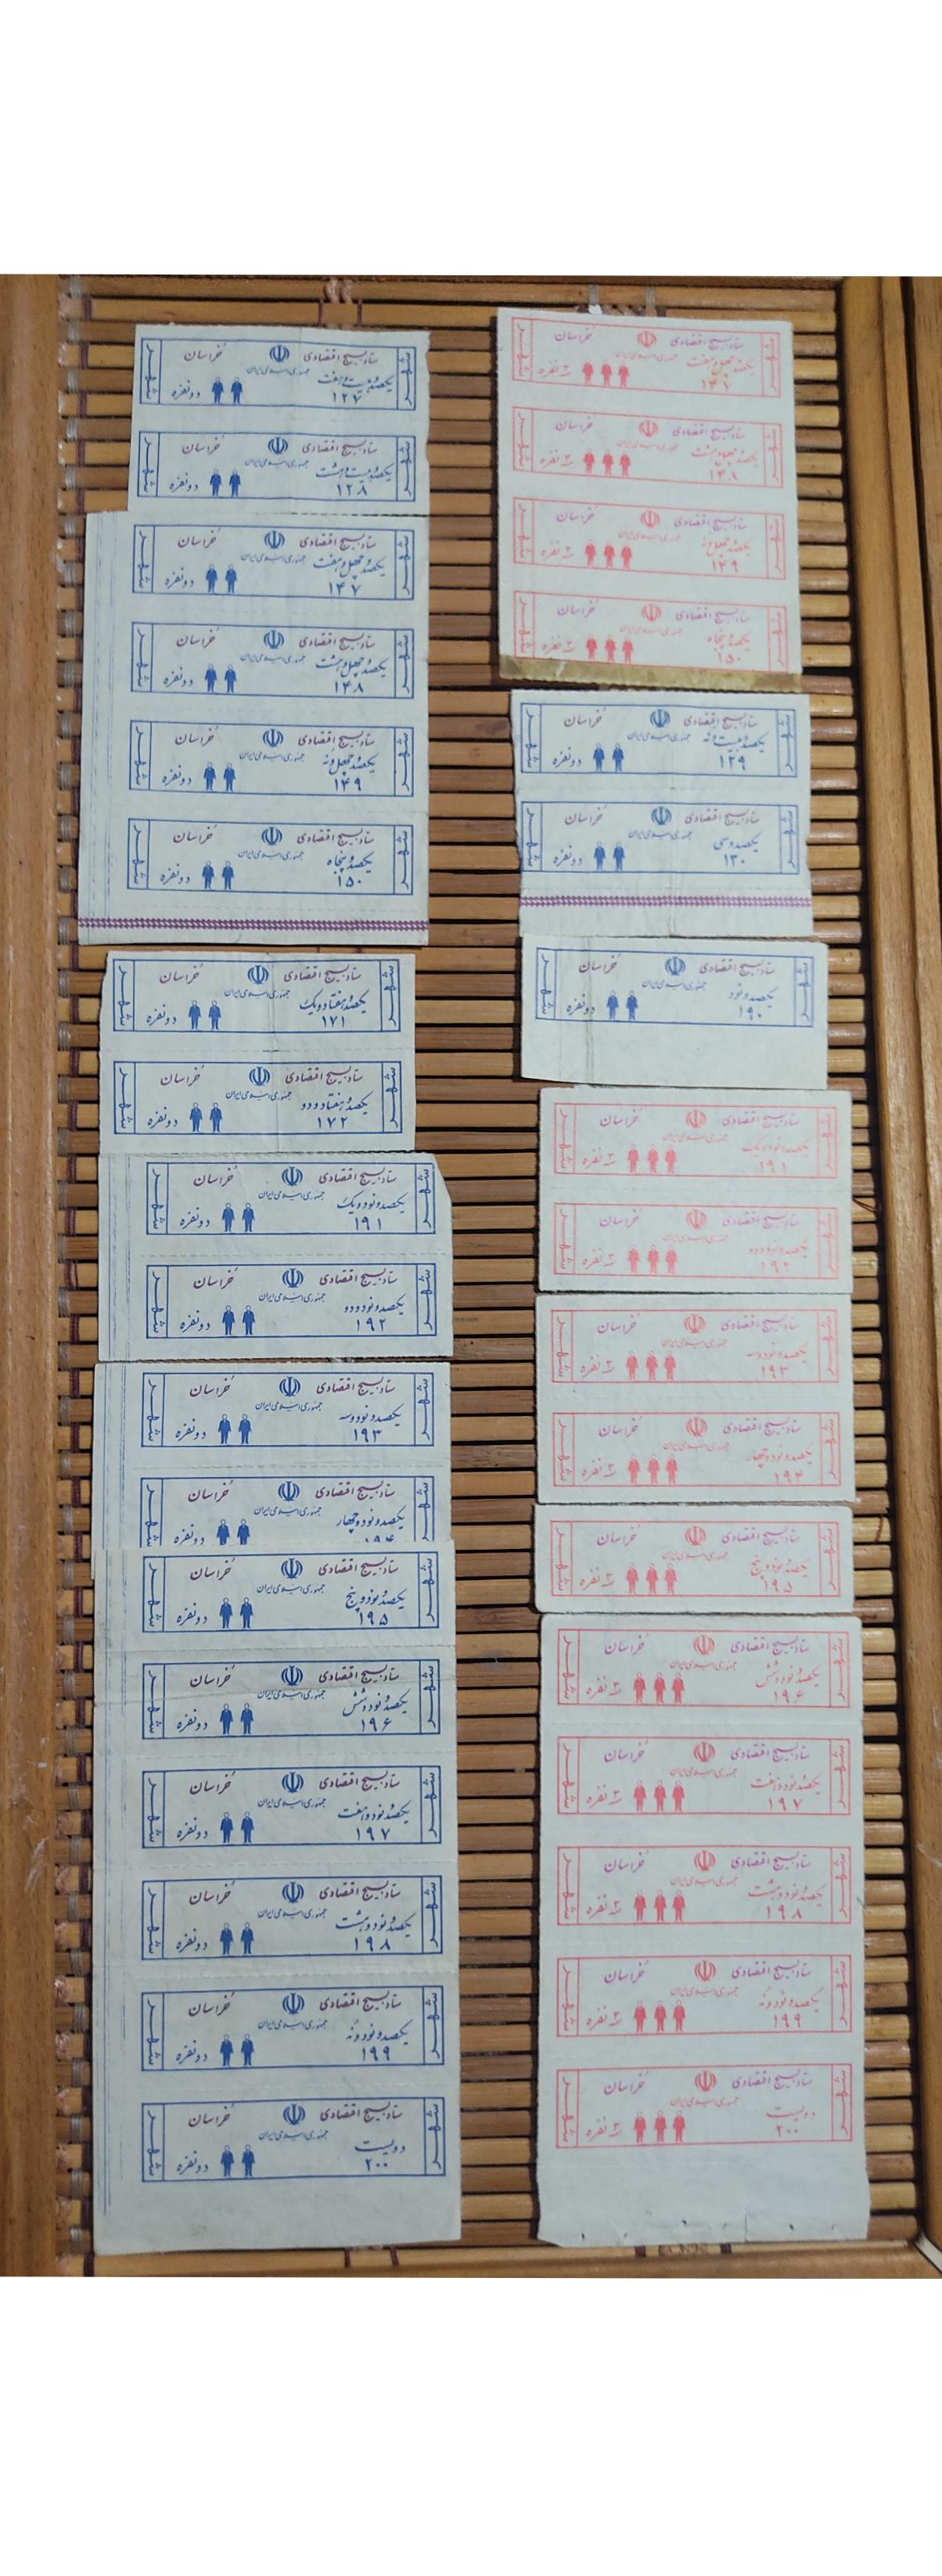 ستاد بسیج اقتصادی خراسان
جمهوری اسلامی ایران
یکصد و بیست و هفت
۱۲۷ دو نفره
شهر
شهر
ستاد بسیج اقتصادی خراسان
جمهوری اسلامی ایران
یکصد و بیست و هشت
۱۲۸ دو نفره
شهر
شهر
ستاد بسیج اقتصادی خراسان
جمهوری اسلامی ایران
یکصد و چهل و هفت
۱۴۷ دو نفره
شهر
شهر
ستاد بسیج اقتصادی خراسان
جمهوری اسلامی ایران
یکصد و چهل و هشت
۱۴۸ دو نفره
شهر
شهر
ستاد بسیج اقتصادی خراسان
جمهوری اسلامی ایران
یکصد و چهل و نه
۱۴۹ دو نفره
شهر
شهر
ستاد بسیج اقتصادی خراسان
جمهوری اسلامی ایران
یکصد و پنجاه
۱۵۰ دو نفره
شهر
شهر
ستاد بسیج اقتصادی خراسان
جمهوری اسلامی ایران
یکصد و هفتاد و یک
۱۷۱ دو نفره
شهر
شهر
ستاد بسیج اقتصادی خراسان
جمهوری اسلامی ایران
یکصد و هفتاد و دو
۱۷۲ دو نفره
شهر
شهر
ستاد بسیج اقتصادی خراسان
جمهوری اسلامی ایران
یکصد و نود و یک
۱۹۱ دو نفره
شهر
شهر
ستاد بسیج اقتصادی خراسان
جمهوری اسلامی ایران
یکصد و نود و دو
۱۹۲ دو نفره
شهر
شهر
ستاد بسیج اقتصادی خراسان
جمهوری اسلامی ایران
یکصد و نود و سه
۱۹۳ دو نفره
شهر
شهر
ستاد بسیج اقتصادی خراسان
جمهوری اسلامی ایران
یکصد و نود و چهار
۱۹۴ دو نفره
شهر
شهر
ستاد بسیج اقتصادی خراسان
جمهوری اسلامی ایران
یکصد و نود و پنج
۱۹۵ دو نفره
شهر
شهر
ستاد بسیج اقتصادی خراسان
جمهوری اسلامی ایران
یکصد و نود و شش
۱۹۶ دو نفره
شهر
شهر
ستاد بسیج اقتصادی خراسان
جمهوری اسلامی ایران
یکصد و نود و هفت
۱۹۷ دو نفره
شهر
شهر
ستاد بسیج اقتصادی خراسان
جمهوری اسلامی ایران
یکصد و نود و هشت
۱۹۸ دو نفره
شهر
شهر
ستاد بسیج اقتصادی خراسان
جمهوری اسلامی ایران
یکصد و نود و نه
۱۹۹ دو نفره
شهر
شهر
ستاد بسیج اقتصادی خراسان
جمهوری اسلامی ایران
دویست
۲۰۰ دو نفره
شهر
شهر
ستاد بسیج اقتصادی خراسان
جمهوری اسلامی ایران
یکصد و چهل و هفت
۱۴۷ ۳ نفره
شهر
شهر
ستاد بسیج اقتصادی خراسان
جمهوری اسلامی ایران
یکصد و چهل و هشت
۱۴۸ ۳ نفره
شهر
شهر
ستاد بسیج اقتصادی خراسان
جمهوری اسلامی ایران
یکصد و چهل و نه
۱۴۹ ۳ نفره
شهر
شهر
ستاد بسیج اقتصادی خراسان
جمهوری اسلامی ایران
یکصد و پنجاه
۱۵۰ ۳ نفره
شهر
شهر
ستاد بسیج اقتصادی خراسان
جمهوری اسلامی ایران
یکصد و بیست و نه
۱۲۹ دو نفره
شهر
شهر
ستاد بسیج اقتصادی خراسان
جمهوری اسلامی ایران
یکصد و سی
۱۳۰ دو نفره
شهر
شهر
ستاد بسیج اقتصادی خراسان
جمهوری اسلامی ایران
یکصد و نود
۱۹۰ دو نفره
شهر
شهر
ستاد بسیج اقتصادی خراسان
جمهوری اسلامی ایران
یکصد و نود و یک
۱۹۱ ۳ نفره
شهر
شهر
ستاد بسیج اقتصادی خراسان
جمهوری اسلامی ایران
یکصد و نود و دو
۱۹۲ ۳ نفره
شهر
شهر
ستاد بسیج اقتصادی خراسان
جمهوری اسلامی ایران
یکصد و نود و سه
۱۹۳ ۳ نفره
شهر
شهر
ستاد بسیج اقتصادی خراسان
جمهوری اسلامی ایران
یکصد و نود و چهار
۱۹۴ ۳ نفره
شهر
شهر
ستاد بسیج اقتصادی خراسان
جمهوری اسلامی ایران
یکصد و نود و پنج
۱۹۵ ۳ نفره
شهر
شهر
ستاد بسیج اقتصادی خراسان
جمهوری اسلامی ایران
یکصد و نود و شش
۱۹۶ ۳ نفره
شهر
شهر
ستاد بسیج اقتصادی خراسان
جمهوری اسلامی ایران
یکصد و نود و هفت
۱۹۷ ۳ نفره
شهر
شهر
ستاد بسیج اقتصادی خراسان
جمهوری اسلامی ایران
یکصد و نود و هشت
۱۹۸ ۳ نفره
شهر
شهر
ستاد بسیج اقتصادی خراسان
جمهوری اسلامی ایران
یکصد و نود و نه
۱۹۹ ۳ نفره
شهر
شهر
ستاد بسیج اقتصادی خراسان
جمهوری اسلامی ایران
دویست
۲۰۰ ۳ نفره
شهر
شهر